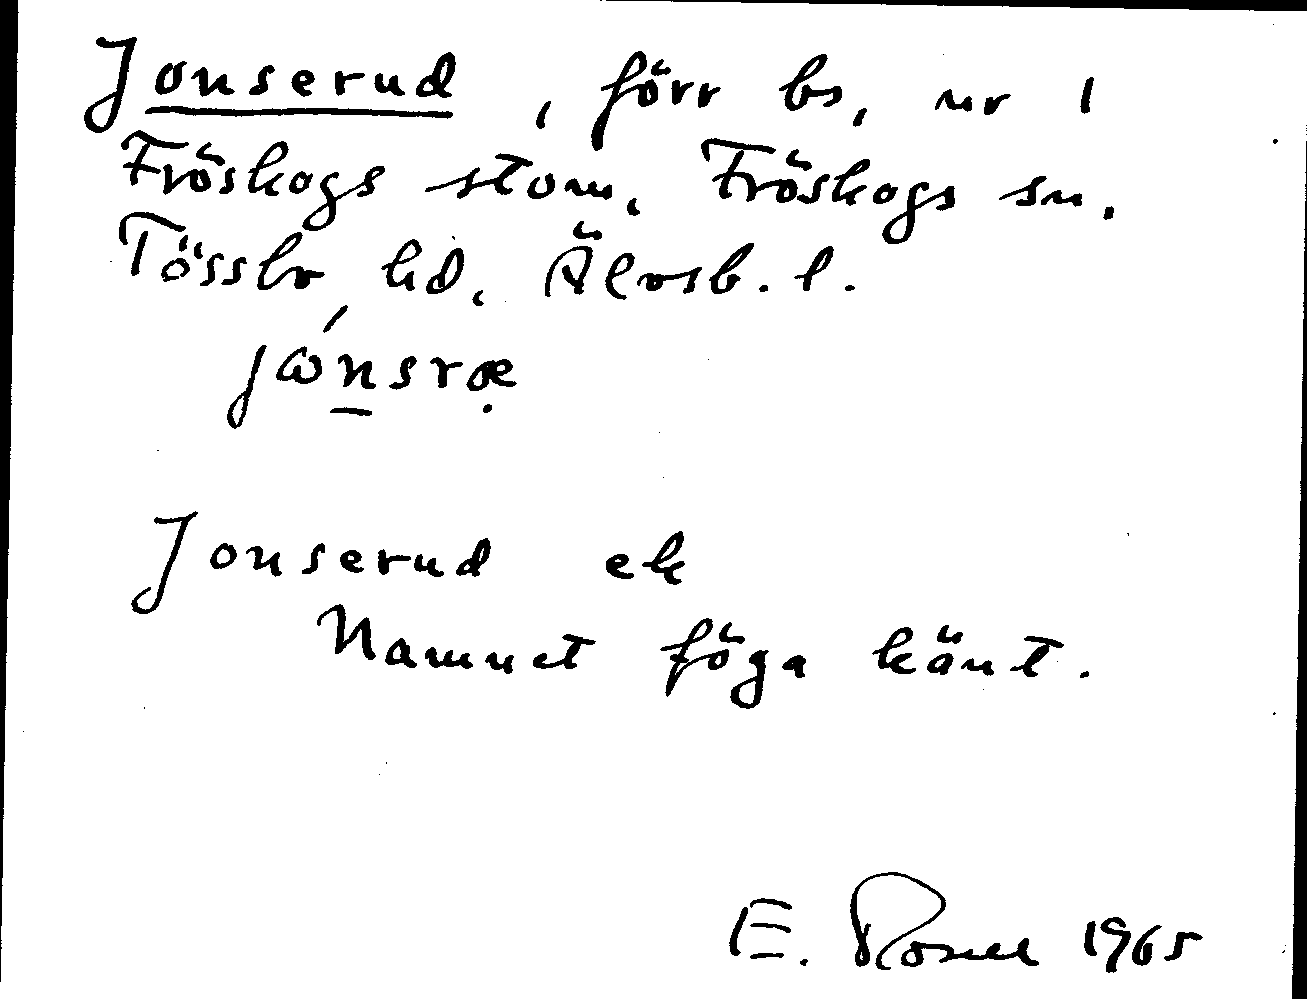 Jonserud, förr bs, nr 1
Fröskogs stom, Fröskogs sn.
Tössbo hd, Älvsb. l.
jώnsræ̣
Jonserud ek
Namnet föga känt.
E. Rosell 1965